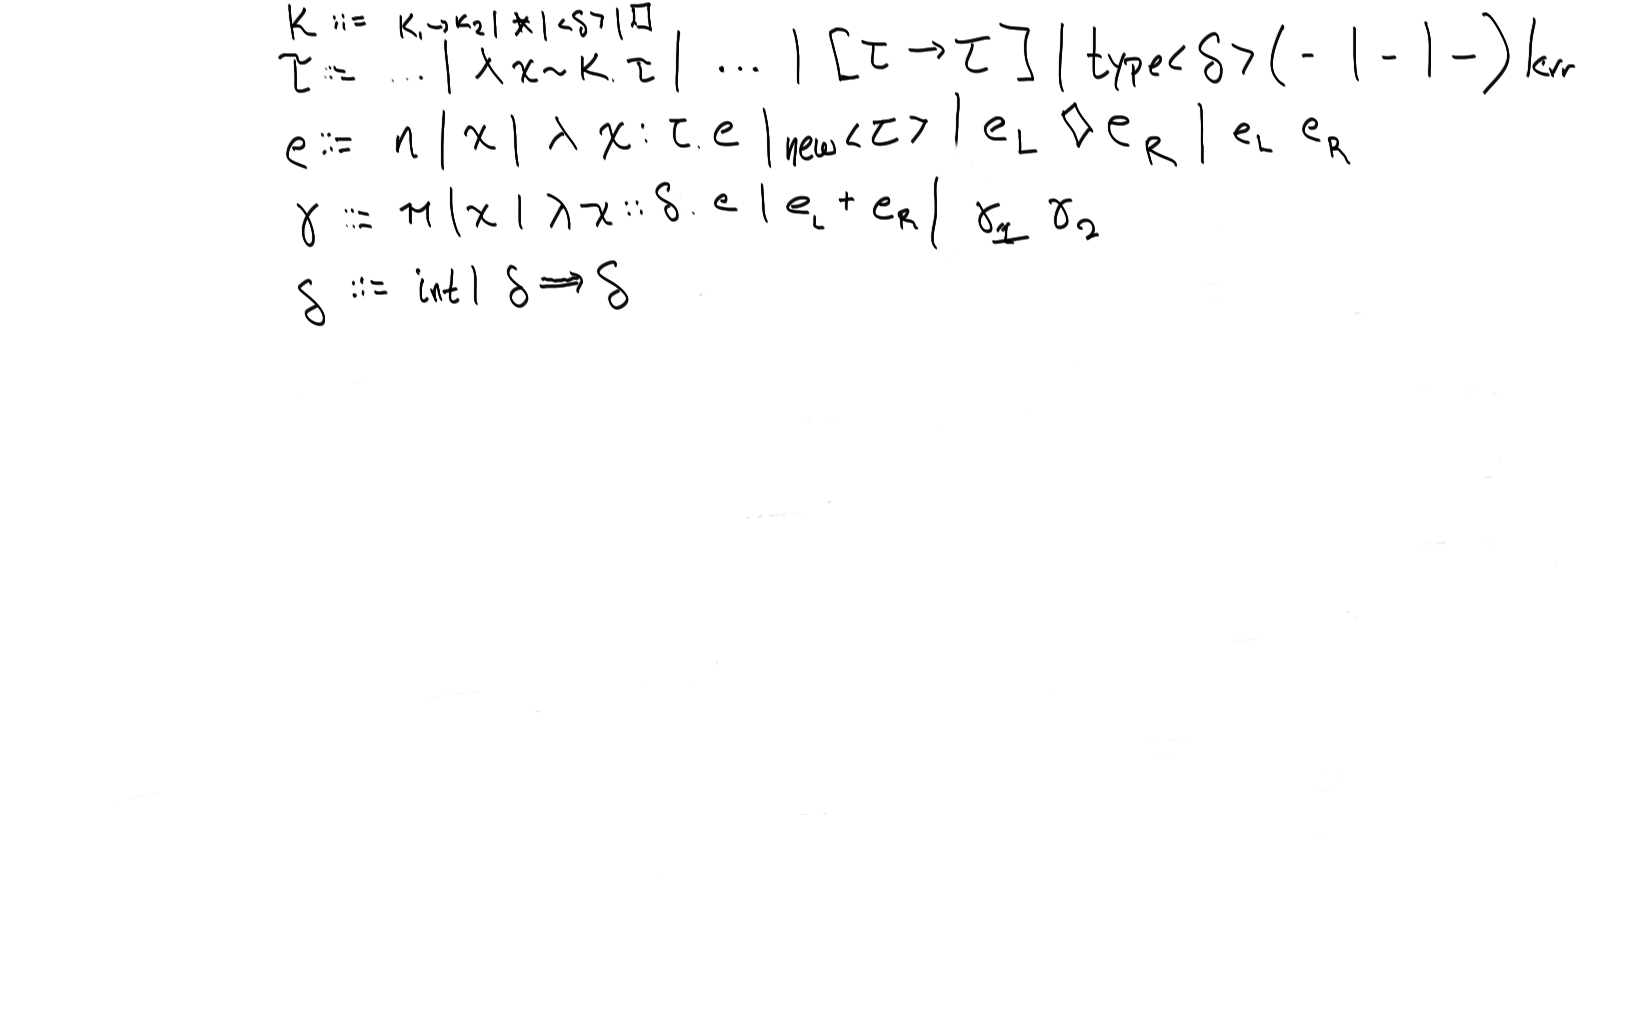 K ::= K₁→K₂ | * | <δ> | □
τ ::= ... | λx~K. τ | ... | [τ → τ] | type<δ>(- | - | -) | err
e ::= n | x | λx:τ.e | new<τ> | e_L ◇ e_R | e_L e_R
γ ::= n | x | λx::δ.e | e_L + e_R | γ₁ γ₂
δ ::= int | δ ⇒ δ